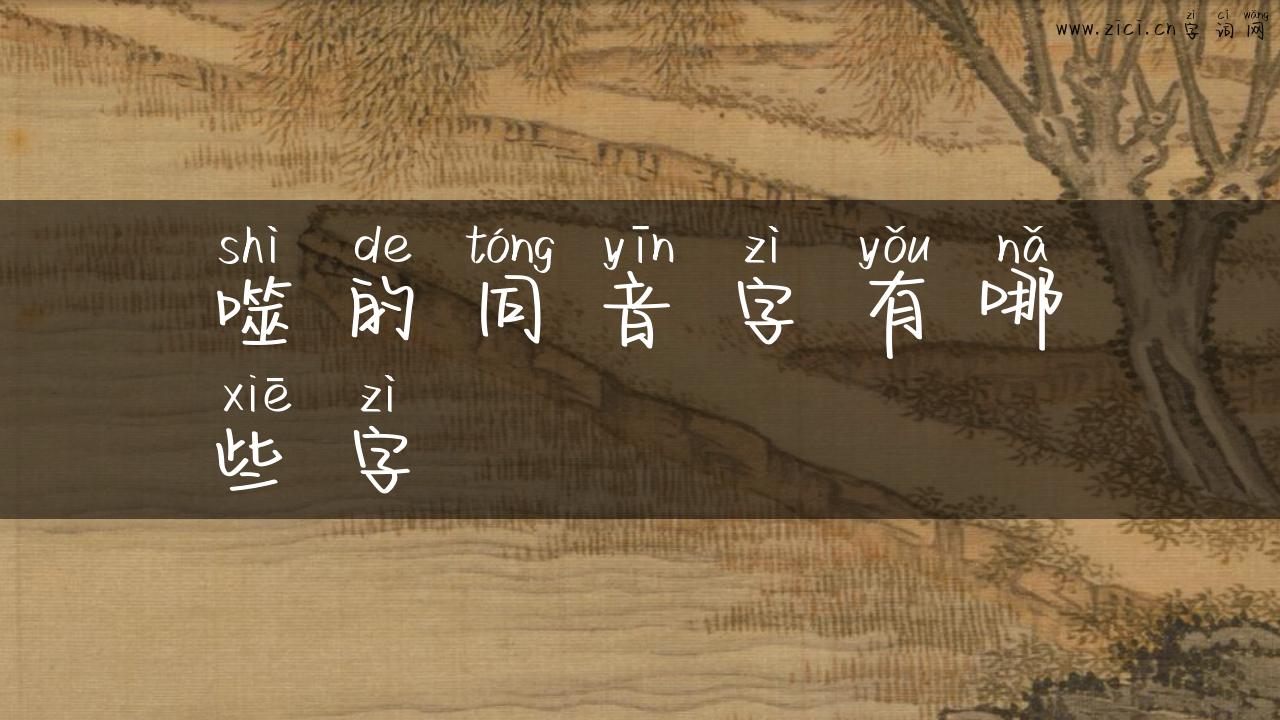 zì cí wǎng
www.zici.cn字词网
shì de tóng yīn zì yǒu nǎ
噬的同音字有哪
xiē zì
些字